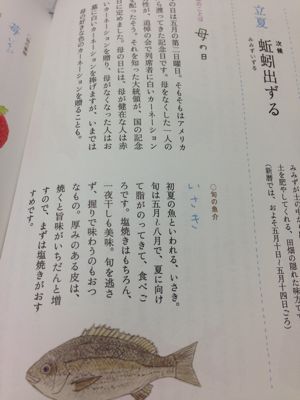 立夏
次候
蚯蚓出ずる
みみず
土を肥やしてくれる、田畑の隠れた味方で
(新暦では、およそ五月十日〜五月十四日ごろ)
母の日
の日は五月の第二日曜日。そもそもはアメリカ
ら渡ってきた記念日です。母をなくした一人の
性が、追悼の会で列席者に白いカーネーション
配ったそう。それを知った大統領が、国の記念
日に定めました。母の日には、母が健在な人は赤
いカーネーションを贈り、母がなくなった人はお
墓に白いカーネーションを捧げますが、いまでは
母の好きな色のカーネーションを贈ることも。
○旬の魚介
いさき
初夏の魚といわれる、いさき。
旬は五月〜八月で、夏に向け
て脂がのってきて、食べご
ろです。塩焼きはもちろん、
一夜干しも美味。旬を逃さ
ず、握りで味わうのもおつ
なもの。厚みのある皮は、
焼くと旨味がいちだんと増
すので、まずは塩焼きがおす
すめです。